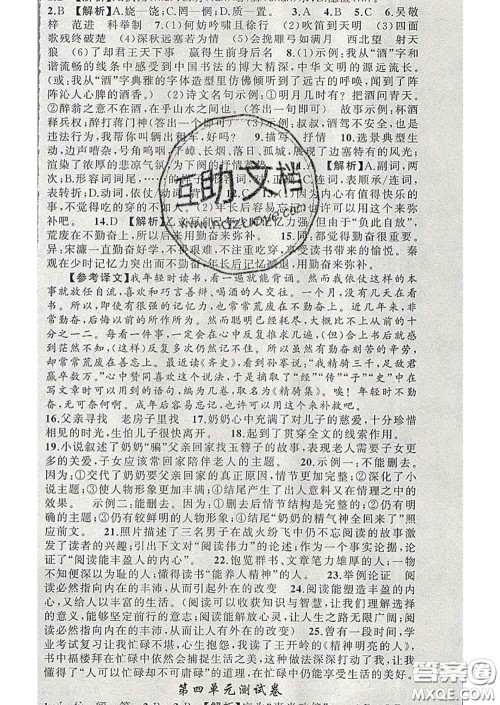 2.B 【解析】A.娆—饶;C.罔—惘;D.质—窒。 3.A 4.B 5.C 6.吴敬
梓 范进 科举制 7.(1)何妨吟啸且徐行 (2)吹笛到天明 (3)四面
歌残终破楚 (4)深秋远塞若为情 (5)会挽雕弓如满月 西北望 射天
狼 (6)了却君王天下事 赢得生前身后名 8.(1)示例:我从“酒”字和
谐流畅的线条中感受到中国书法的博大精深,中华文明的源远流长。
(或:我从“酒”字典雅的字体造型里仿佛倾听到了远古的呼唤,闻到了阵
阵沁人心脾的酒香。) (2)诗文名句示例:①明月几时有?把酒问青天。
②醉翁之意不在酒,在乎山水之间也。(答出一句即可) 故事示例:杯酒
释兵权;醉打蒋门神(答出一个即可) (3)示例:叔叔,酒驾不安全,也是
违法行为,我帮你叫辆出租车,好吗? 9.描写 抒情 10.选景典型生
动,边声嘈杂,号角呜咽,千嶂、长烟、落日、孤城,展现了边塞特有的风光;
渲染了浓厚的悲凉气氛,为下阕的抒情
【解析】A.副词,两
次;B.形容词词尾,
表顺承/连词,
表转折;D.动词,
12.C 13.
内心有值得快乐的事,
不觉得吃的穿的不如人。 (2)年长后容易忘记的
许可以用这个来弥
补吧。 14.D 【解析】
但由于“负此自放”,
荒废在不勤奋。所以应以勤奋来弥补。 15.同:都觉得勤奋很重要。
异:宋濂一直勤奋好学,不
艰难困苦,享受读书带来的愉悦。秦
观在少时记忆力突出而不勤奋,年长后记忆减退,用勤奋来弥补。
【参考译文】我年轻时读书,看一遍就能背诵。然而我依仗这样的本
事就放任自流,喜欢和巧言善辩、喝酒的人交往。一个月,没有几天在看
书。所以,即使有很强的记忆力,也常常荒废在不勤奋上。近几年来,非
常勤奋,后悔以前的所作所为。然而聪明已经差尽,大约比不上从前的十
分之一二。每看一件事,一定要在心中反复推求几遍,(但)合上书后就感
到茫然不知,(这样)反复多次仍然记不住。所以我虽然勤奋刻苦的辛劳,
却常常荒废在善忘上。最近读《齐史》,看到孙搴说:“我精骑三千,足敌君
羸卒数万。”心中赞同喜欢这个说法,于是摘取了“经”“传”“子”“史”中在
写文章时可以用到的语句,编为几卷,取名为《精骑集》。唉!年轻时不勤
奋,无可奈何了。成年后容易忘记,也许可以用这个来弥补吧。
16.父亲寻找 老房子里找 17.奶奶心中充满了对儿子的慈爱,十分珍惜
相见的时光,生怕儿子很快离开。 18.起到了贯穿全文的线索作用。
19.小说叙述了奶奶“骗”父亲回家找玉簪子的故事,表现老人需要子女更
多的关爱,子女应该常回家陪伴老人的主题。 20.示例一:不能删去。
因为:①交代了奶奶要父亲回家的真正原因,情节更加完整;②深化了小
说主题;③使人物形象更加丰满;④结尾产生了出人意料又在情理之中的
效果。 示例二:能删去。因为:①删去后情节的发展仍完整;②仍有明
确的主题;③仍有较鲜明的人物形象;④结尾“奶奶的精气神全回来了”照
应前文。 21.文章开篇描写了三名男子在战火纷飞中仍不忘阅读的故事
激发了读者的兴趣;引出下文对“阅读伟力”的论述;作为一个事实论据,论
证了“阅读能丰盈人的内心”。 22.饱览群书,文章笔力雄厚的人;一物
不知便深以为耻的人;懂得读书“能养人精神”的人。 23.举例论证 阅读
必然浇灌内在的丰沛,从而引起外在的改变 24.阅读能塑造丰盈的内心,
给人以丰富的生活。 (阅读可以收获知识与智慧,阅读让我们理解选择
的意义,能够实现自己的愿望,让人生之路无限广阔;阅读
必然浇灌内在的丰沛,从而让人有外在的改变) 25.曾有一段时间,学
业考试复习让我忙碌不堪,心里很烦乱。忙碌中,我读王开岭的《精神明亮的人》,
书中福楼拜在忙碌中依然会捕捉生活之美,使我变得淡定从容。我懂得
了“人可以忙碌却不可庸碌”的道理,在忙碌中仍能享受生活的美好。
第四单元测试卷
互助文档
答案圈
MXQE.COM